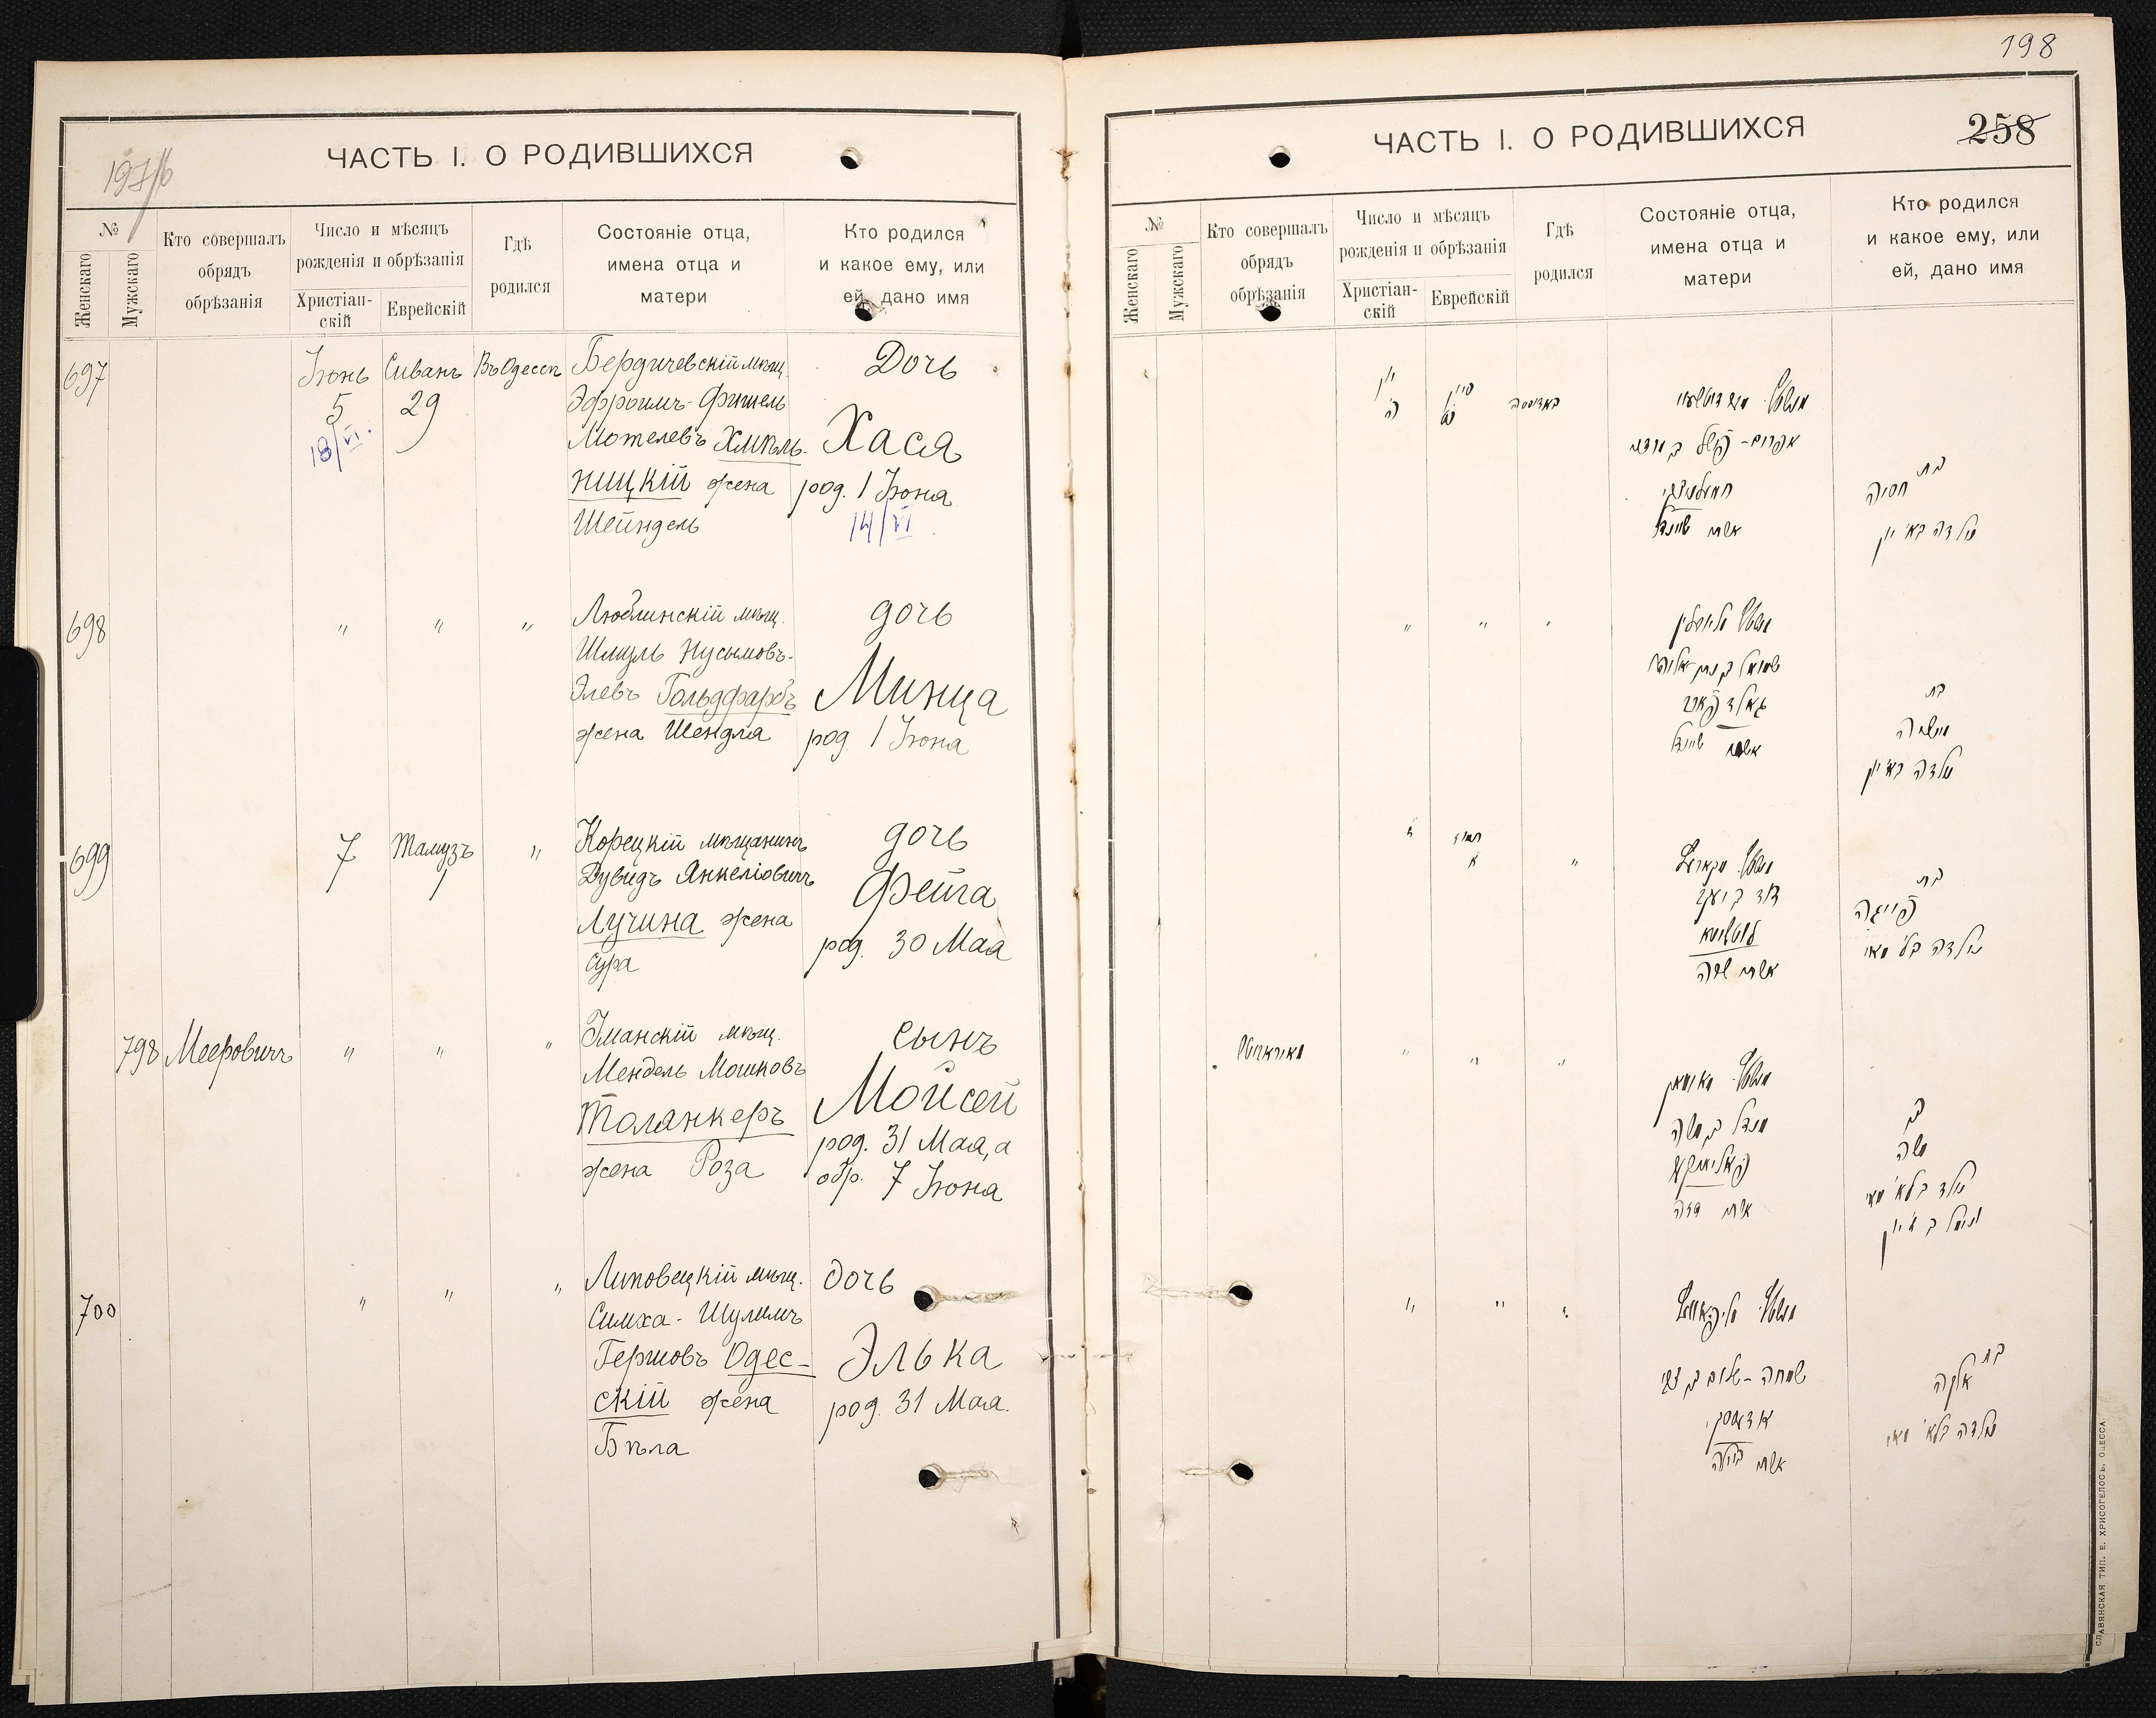 ЧАСТЬ I. О РОДИВШИХСЯ
№
Женскаго
Мужскаго
Кто совершалъ
обрядъ
обрѣзанія
Число и мѣсяцъ
рожденія и обрѣзанія
Христіан-
скій
Еврейскій
Гдѣ
родился
Состояніе отца,
имена отца и
матери
Кто родился
и какое ему, или
ей, дано имя
697
Іюнь
5
18/VI.
Сиванъ
29
Въ Одессѣ
Бердичевскій мѣщ.
Эфроимъ-Фишель
Мотелевъ Хмѣль-
ницкій жена
Шейндель
Дочь
Хася
род. 1 Іюня
14/VI
698
"
"
"
Люблинскій мѣщ.
Шмуль Нусымовъ-
Элевъ Гольдфарбъ
жена Шендля
дочь
Минца
род 1 Іюня
699
7
Тамузъ
1
"
Корецкій мѣщанинъ
Дувидъ Янкеліовичъ
Лучина жена
Сура
дочь
Фейга
род. 30 Мая
798
Мееровичъ
"
"
"
Уманскій мѣщ.
Мендель Мошковъ
Толянкеръ
жена Роза
сынъ
Мойсей
род. 31 Мая, а
обр. 7 Іюня
700
"
"
"
Липовецкій мѣщ.
Симха-Шулимъ
Гершовъ Одес-
скій жена
Бѣла
дочь
Элька
род. 31 Мая.
198
ЧАСТЬ I. О РОДИВШИХСЯ
258
№
Женскаго
Мужскаго
Кто совершалъ
обрядъ
обрѣзанія
Число и мѣсяцъ
рожденія и обрѣзанія
Христіан-
скій
Еврейскій
Гдѣ
родился
Состояніе отца,
имена отца и
матери
Кто родился
и какое ему, или
ей, дано имя
יון
ה'
סיון
כט
באדעססה
אפרים-פישל במרדכי
אשתו שיינדל
בת
חסיה
נולדה בא' יון
"
"
"
אשתו שיינדל
בת
נולדה בא' יון
תמוז
א
"
דוד ביעקב
אשתו שרה
בת
פייגה
נולדה בל' מאי
"
"
"
מנדל במשה
אשתו רוזה
בן
משה
נולד בלא' מאי
"
"
שמחה-שלום בן צבי
אדעסקי
אשתו ביילה
בת
אלקה
נולדה בלא' מאי
СЛАВЯНСКАЯ ТИП. Е. ХРИСОГЕЛОСЪ, ОДЕССА.